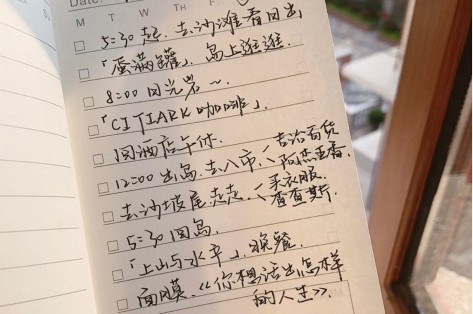 Date:
M T W T F S S
5:30起、去沙滩看日出
「蛋满罐」、岛上逛逛.
8:00日光岩~
「CITIARK咖啡」.
回酒店午休.
12:00出岛、去八市、吉治百货
阿杰五香
去沙坡尾走走、买衣服.
查查斯.
5:30回岛.
「上山与水平」、晚餐.
面膜.《你想活出怎样
的人生》.